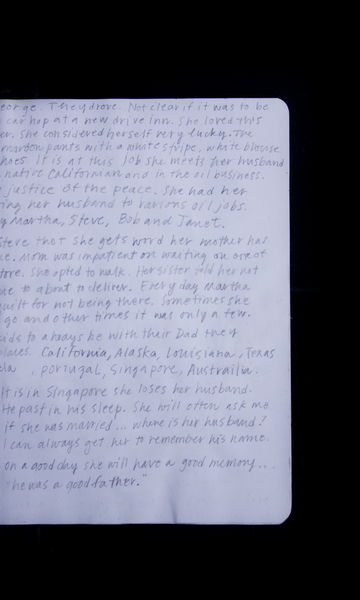 eorge. They drove. Not clear if it was to be
car hop at a new drive inn. She loved this
er. She considered herself very lucky. The
maroon pants with a white stripe, white blouse
hoes. It is at this job she meets her husband
native Californian and in the oil business.
justice of the peace. She had her
ing her husband to various oil jobs.
y Martha, Steve, Bob and Janet.
Steve that she gets word her mother has
se. Mom was impatient on waiting on one of
tore. She opted to walk. Her sister told her not
ue to about to deliver. Every day Martha
guilt for not being there. Sometimes she
go and other times it was only a few.
ids to always be with their Dad they
places. California, Alaska, Louisiana, Texas
ela , Portugal, Singapore, Austrailia.
It is in Singapore she loses her husband.
He past in his sleep. She will often ask me
if she was married... where is her husband?
I can always get her to remember his name.
on a good day she will have a good memory...
"he was a good father."